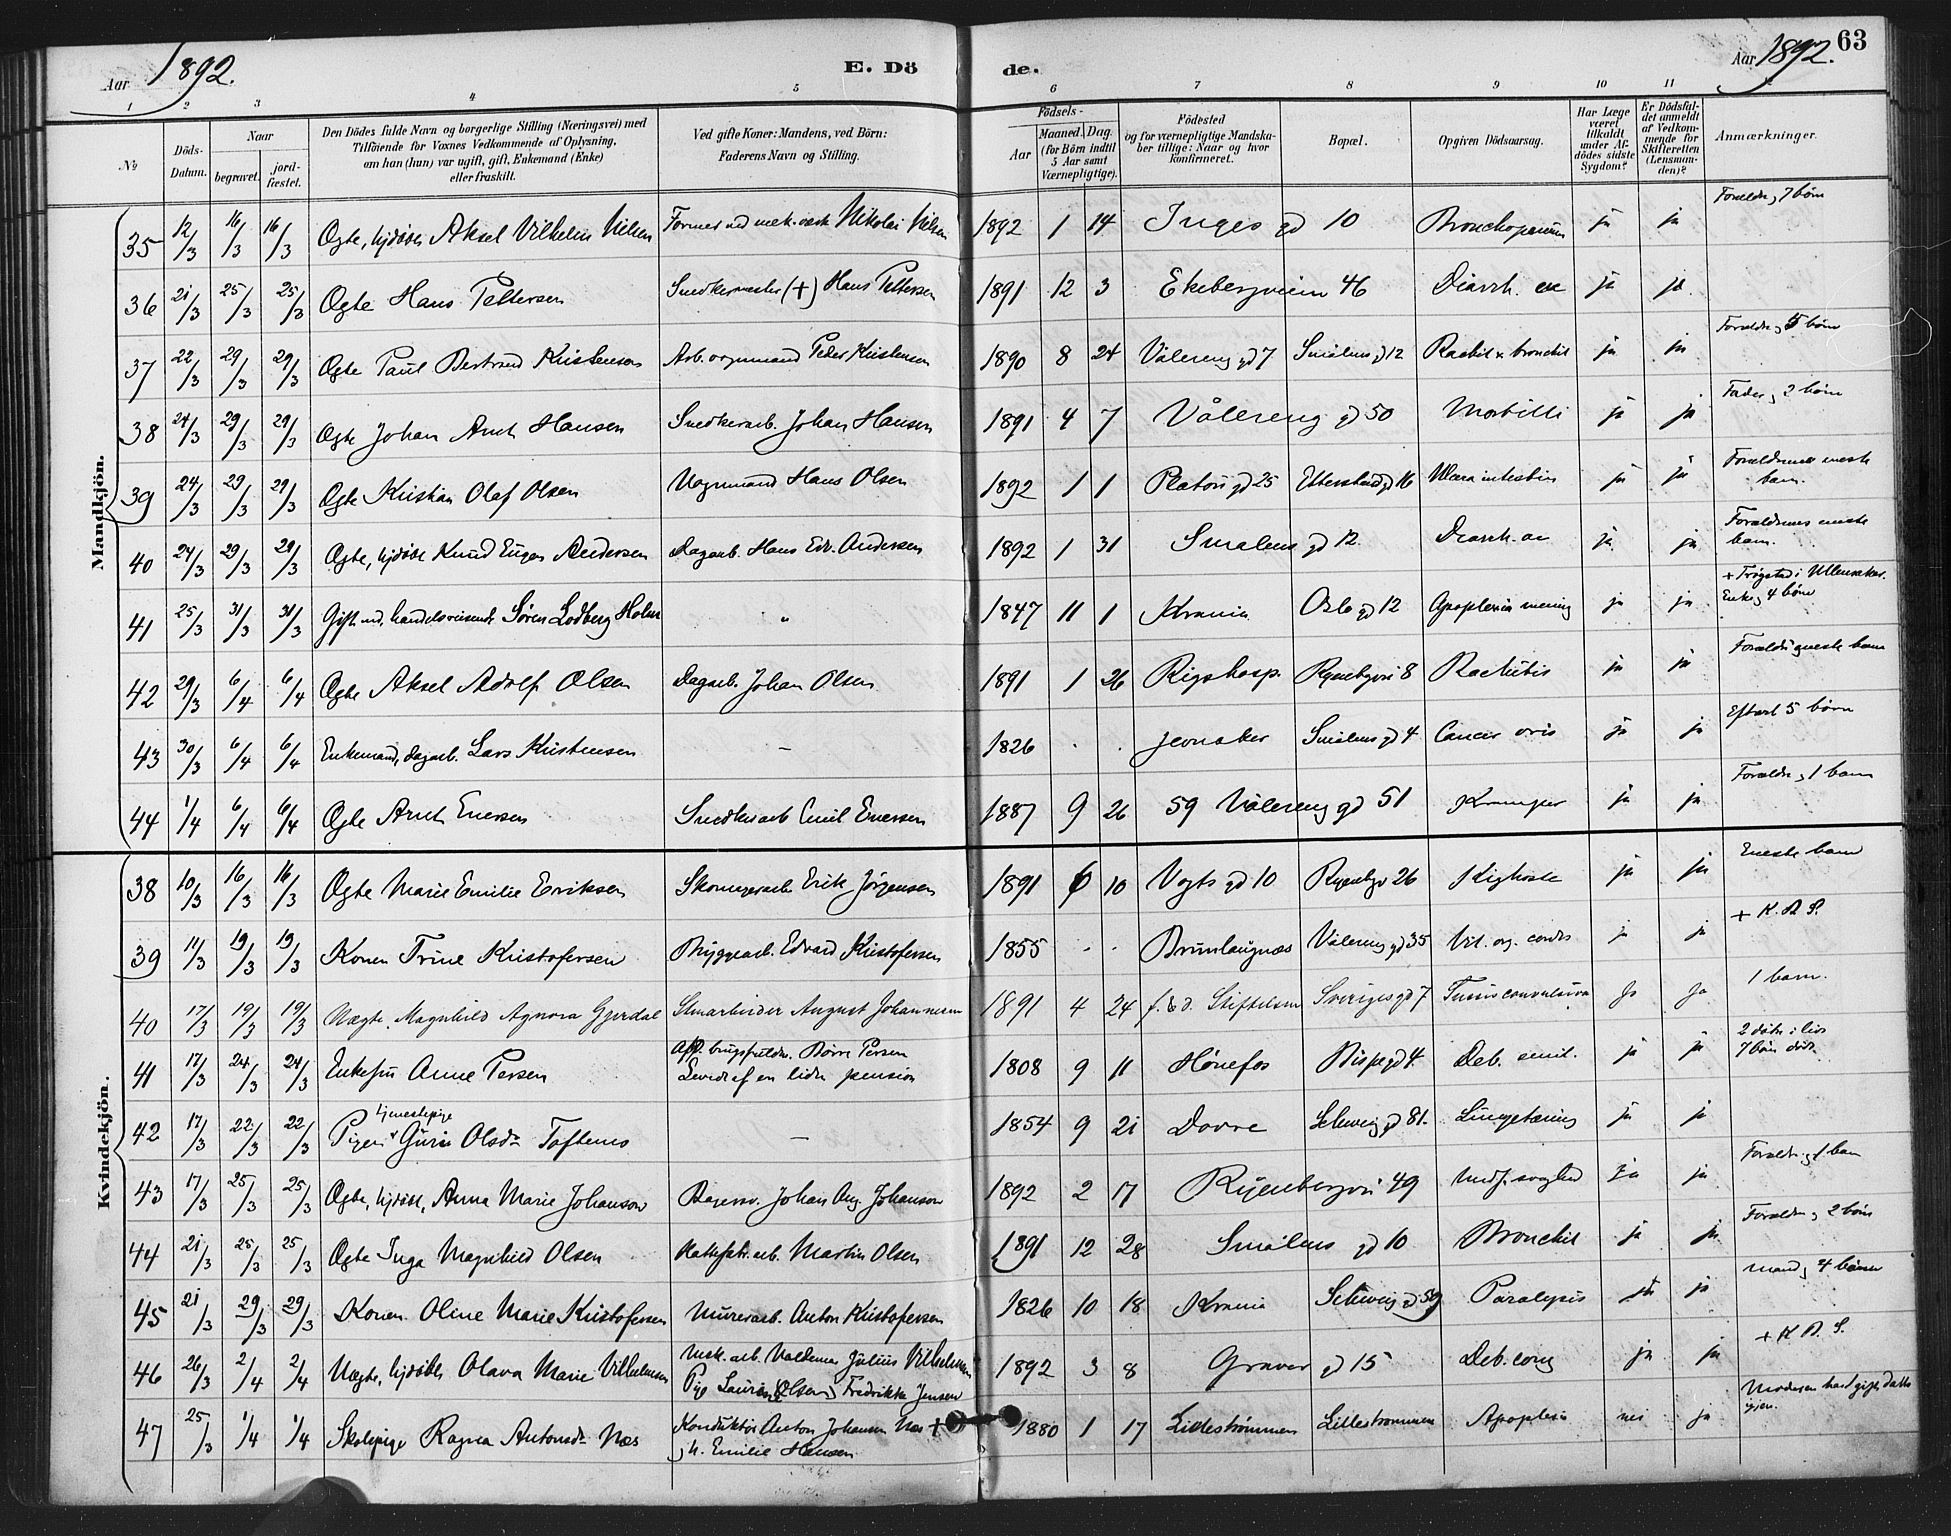 Aar 1892. E. Dö de. Aar 1892. 63
1 2 3 4 5 6 7 8 9 10 11
No
Döds-Datum.
Naar
begravet.
jord-fæstet.
Den Dödes fulde Navn og borgerlige Stilling (Næringsvei) med
Tilföiende for Voxnes Vedkommende af Oplysning,
om han (hun) var ugift, gift, Enkemand (Enke)
eller fraskilt.
Ved gifte Koner: Mandens, ved Börn:
Faderens Navn og Stilling.
Födsels-
Aar
Maaned. Dag.
(for Børn indtil
5 Aar samt
Værnepligtige).
Födested
og for værnepligtige Mandska-
ber tillige: Naar og hvor
konfirmeret.
Bopæl.
Opgiven Dödsaarsag.
Har Læge
været
tilkaldt
under Af-
dödes sidste
Sygdom?
Er Dödsfal-
det anmeldt
af Vedkom-
mende for
Skifteretten
(Lensman-
den)?
Anmærkninger.
Mandkjön.
35 12/3 16/3 16/3 Ægte, hjdøbt Aksel Vilhelm Nilsen Former ved mek. værk Nikolai Nilsen 1892 1 14 Inges gd 10 ja ja Forældre, 7 børn
36 21/3 25/3 25/3 Ægte Hans Pettersen Snedkermester (+) Hans Pettersen 1891 12 3 Ekebergveien 46 Diarrh. ja ja
37 22/3 29/3 29/3 Ægte Paul Bertrand Kristensen Peder Kristensen 1890 8 24 Vålereng gd 7 Smålens gd 12 Rachit & bronchit ja ja Forældre, 5 børn
38 24/3 29/3 29/3 Ægte Johan Arnt Hansen Snedkerarb. Johan Hansen 1891 4 7 Vålereng gd 50 Morbilli ja ja Fader, 2 børn
39 24/3 29/3 29/3 Ægte Kristian Olaf Olsen Vognmand Hans Olsen 1892 1 1 Platous gd 25 Etterstad gd 16 ja ja Forældrenes eneste
barn.
40 24/3 29/3 29/3 Ægte, hjdøbt Knud Eugen Andersen Dagarb. Hans Edv. Andersen 1892 1 31 Smalens gd 12 Diarrh. ja ja Forældrenes eneste
barn.
41 25/3 31/3 31/3 Gift md, handelsreisende Søren Lodberg Holm " 1847 11 1 Krania Oslo gd 12 Apoplexia mening ja ja + Trøgstad i Ullensaker.
Enke, 4 børn
42 29/3 6/4 6/4 Ægte Aksel Adolf Olsen Dagarb. Johan Olsen 1891 1 26 Rigshosp. Ryenbgvei 8 Rachitis ja ja
43 30/3 6/4 6/4 Enkemand, dagarb. Lars Kristensen — 1826 . . Jevnaker Smålens gd 4 Cancer oris ja ja Efterl 5 børn
44 1/4 6/4 6/4 Ægte Arnt Enersen Snedkerarb Emil Enersen 1887 9 26 59 Vålereng gd 51 Kramper ja ja Forældre, 1 barn
Kvindekjön.
38 10/3 16/3 16/3 Ægte Marie Emilie Eriksen Skomagerarb. Erik Jörgensen 1891 6 10 Vogts gd 10 Ryenbgv 26 Kighoste ja ja Eneste barn
39 11/3 19/3 19/3 Konen Trine Kristofersen Bryggearb. Edvard Kristofersen 1855 . . Brunlaugnæs Vålereng gd 35 Vit. org. cordis ja ja + K. A. S.
40 17/3 19/3 19/3 Uægte Magnhild Agnora Gjerdal Stenarbeider August Johannesen 1891 4 24 f. & d. Stiftelsen Sveriges gd 7 Tussis convulsiva Ja Ja 1 barn.
41 17/3 24/3 24/3 Enkefru Anne Persen Børre Persen
Levede af en liden pension 1808 9 11 Hönefos Bispegd 4. Deb. senil. ja ja 2 døtre i live
7 børn døde
42 17/3 22/3 22/3 Pigen tjenestepige Guri Olsdr Toftemo — 1854 9 21 Dovre Schweig gd 81. Lungetæring ja ja
43 17/3 25/3 25/3 Ægte, hjdøbt, Anna Marie Johanson Bagersv. Johan Aug. Johanson 1892 2 17 Ryenbergvei 49 Medf. svaghed ja ja Forældre, 1 barn
44 21/3 25/3 25/3 Ægte Inga Magnhild Olsen Martin Olsen 1891 12 28 Smålens gd 10 Bronchit ja ja Forældre, 2 børn
45 21/3 29/3 29/3 Konen Oline Marie Kristofersen Murerarb. Anton Kristofersen 1826 10 18 Krania Schweig gd 59 Paralysis ja ja Mand, 4 børn
46 26/3 2/4 2/4 Uægte, hjdøbt Olava Marie Vilhelmsen Mek. arb. Valdemar Julius Vilhelmsen
Pige Fredrikke Jensen 1892 3 8 Graver gd 15 Deb. cong ja ja + K A. S.
47 25/3 1/4 1/4 Skolepige Ragna Antonsdr Næs Konduktör Anton Johansen Næs +
h. Emilie Hansen 1880 1 17 Lillestrømmen Lillestrømmen Apoplexi nei ja Moderen har gift datter
igjen.